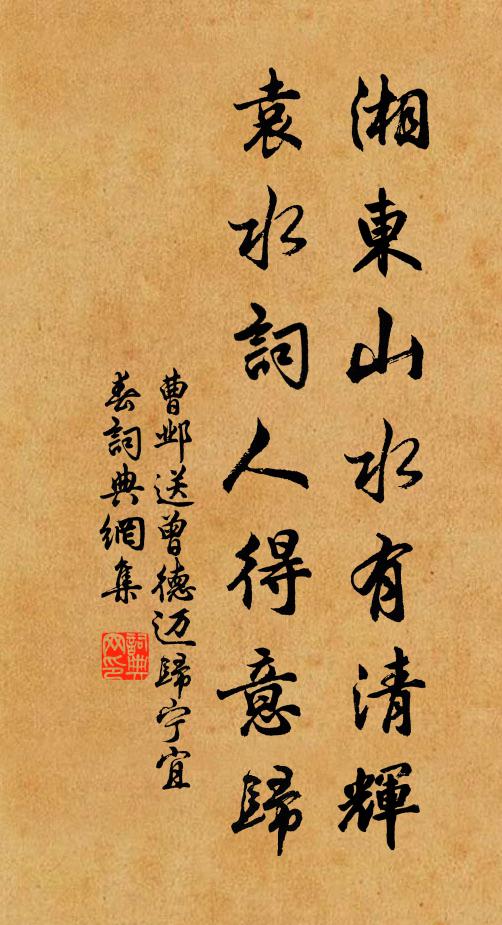 湘東山水有清輝
袁水詞人得意歸
曹邺送曾德迈歸宁宜
春詞典網集
詞典
网印